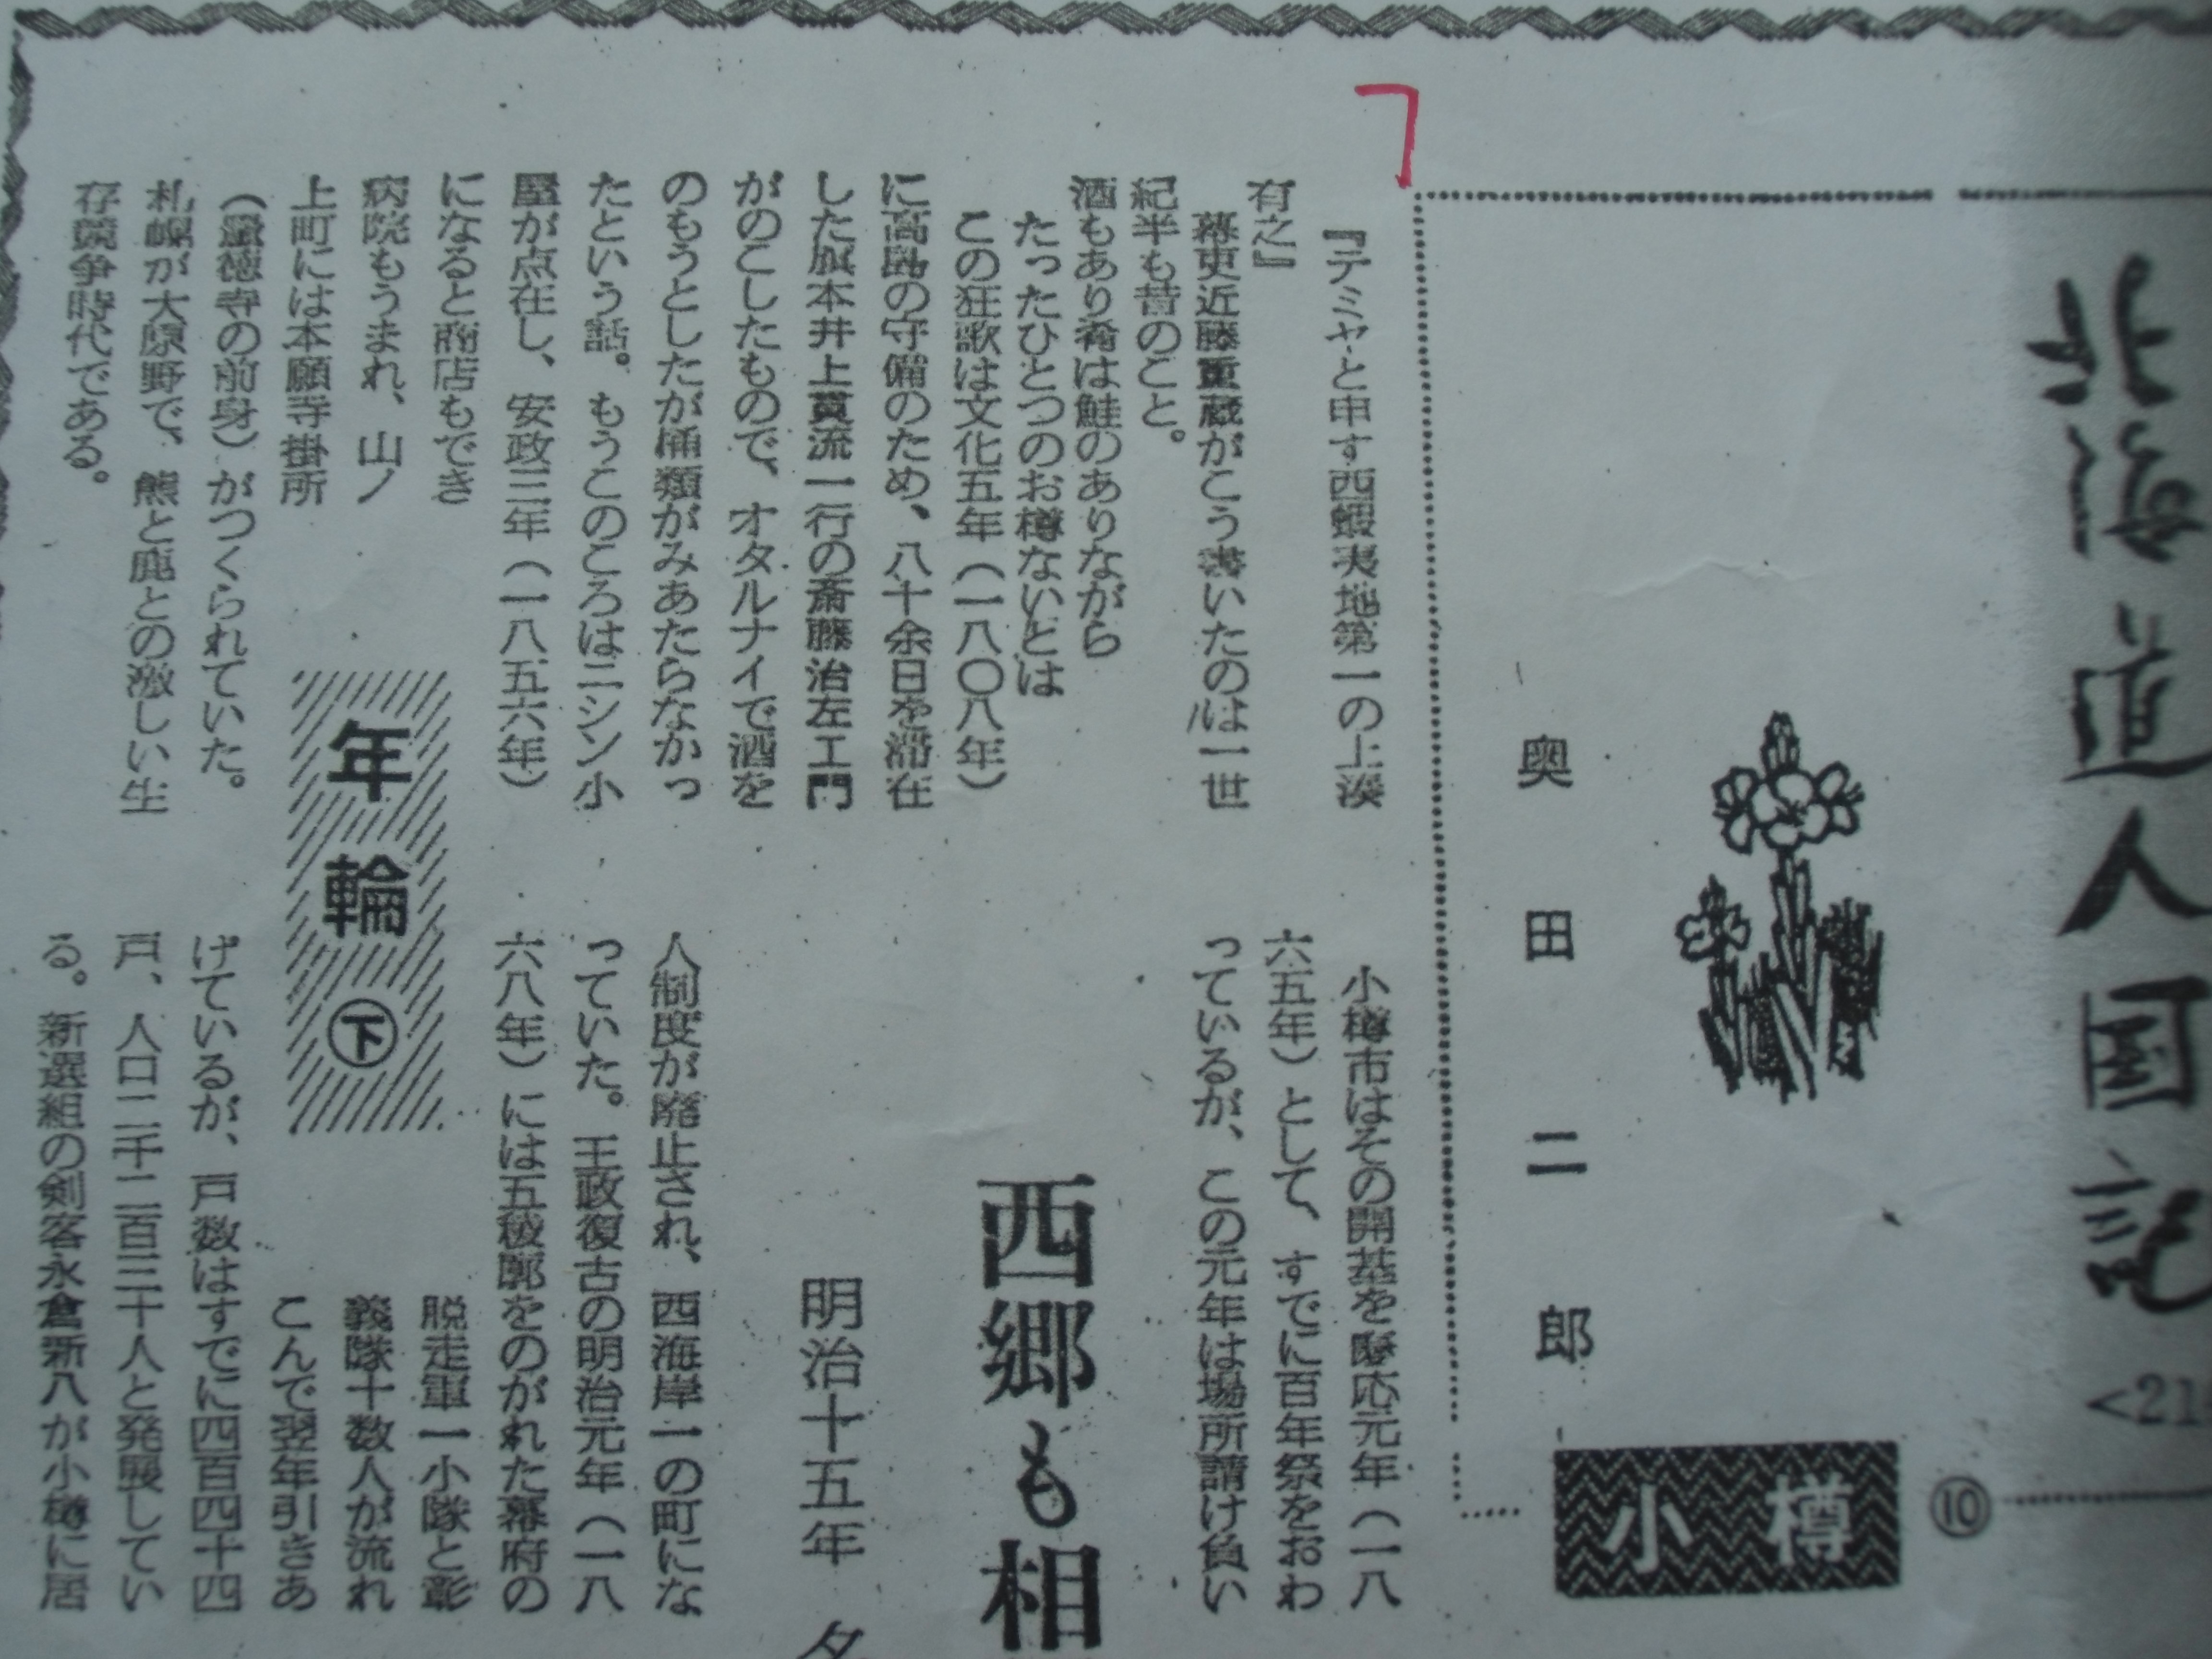 北海道人國記
<21
⑩
小樽
奥田二郎
『テミヤと申す西蝦夷地第一の上湊
有之』
幕吏近藤重蔵がこう書いたのは一世
紀半も昔のこと。
酒もあり肴は鮭のありながら
たったひとつのお樽ないとは
この狂歌は文化五年(一八〇八年)
に高島の守備のため、八十余日を滞在
した旗本井上貫流一行の斎藤治左エ門
がのこしたもので、オタルナイで酒を
のもうとしたが桶類がみあたらなかっ
たという話。もうこのころはニシン小
屋が点在し、安政三年(一八五六年)
になると商店もでき
病院もうまれ、山ノ
上町には本願寺掛所
(量徳寺の前身)がつくられていた。
札幌が大原野で、熊と鹿との激しい生
存競争時代である。
年輪㊦
小樽市はその開基を慶応元年(一八
六五年)として、すでに百年祭をおわ
っているが、この元年は場所請け負い
西郷も相
明治十五年 タ
人制度が廃止され、西海岸一の町にな
っていた。王政復古の明治元年(一八
六八年)には五稜廓をのがれた幕府の
脱走軍一小隊と彰
義隊十数人が流れ
こんで翌年引きあ
げているが、戸数はすでに四百四十四
戸、人口二千二百三十人と発展してい
る。新選組の剣客永倉新八が小樽に居